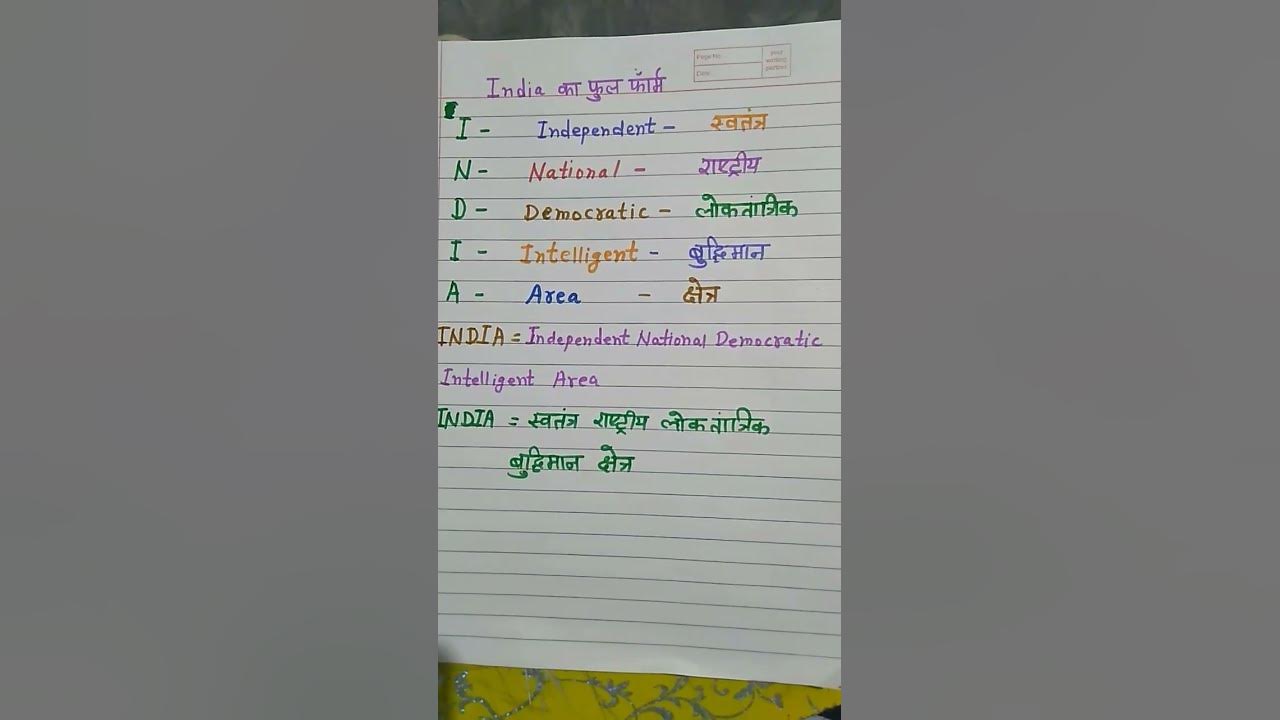 Page No.
Date
your
working
partner
India का फुल फॉर्म
I - Independent - स्वतंत्र
N - National - राष्ट्रीय
D - Democratic - लोकतांत्रिक
I - Intelligent - बुद्धिमान
A - Area - क्षेत्र
INDIA = Independent National Democratic
Intelligent Area
INDIA = स्वतंत्र राष्ट्रीय लोकतांत्रिक
बुद्धिमान क्षेत्र